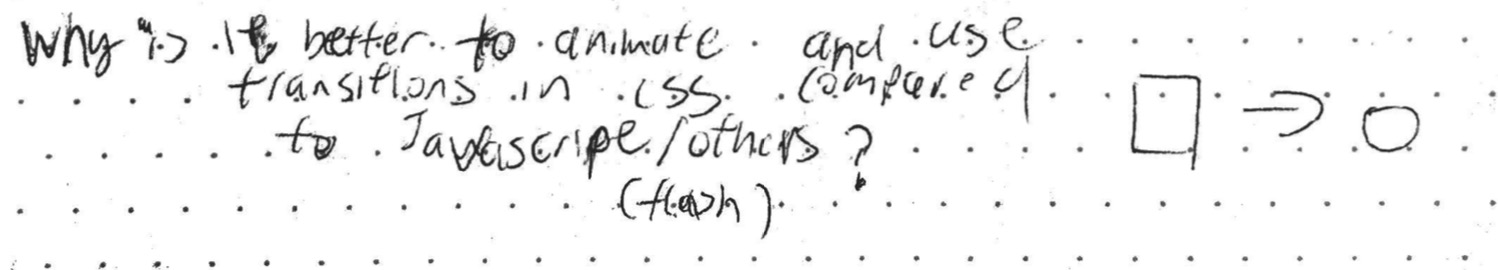 Why is it better to animate and use
transitions in css compared
to Javascript/others?
(flash)